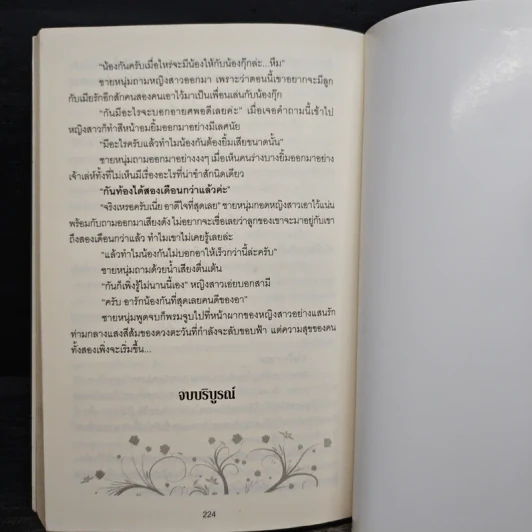 "น้องกันครับเมื่อไหร่จะมีน้องให้กับน้องกุ๊กล่ะ...หืม"
ชายหนุ่มถามหญิงสาวออกมา เพราะว่าตอนนี้เขาอยากจะมีลูก
กับเมียรักอีกสักคนสองคนเอาไว้มาเป็นเพื่อนเล่นกับน้องกุ๊ก
"กันมีอะไรจะบอกอาขศพอดีเลยค่ะ" เมื่อเจอคำถามนี้เข้าไป
หญิงสาวก็ทำสีหน้าอมยิ้มออกมาอย่างมีเลศนัย
"มีอะไรครับแล้วทำไมน้องกันต้องยิ้มเสียขนาดนั้น"
ชายหนุ่มถามออกมาอย่างงงๆ เมื่อเห็นคนร่างบางยิ้มออกมาอย่าง
เจ้าเล่ห์ทั้งที่ไม่เห็นมีเรื่องอะไรที่น่าขำสักนิดเดียว
"กันท้องได้สองเดือนกว่าแล้วค่ะ"
"จริงเหรอครับเนี่ย อาดีใจที่สุดเลย" ชายหนุ่มกอดหญิงสาวเอาไว้แน่น
พร้อมกับถามออกมาเสียงดัง ไม่อยากจะเชื่อเลยว่าลูกของเขาจะมาอยู่กับเขา
ถึงสองเดือนกว่าแล้ว ทำไมเขาไม่เคยรู้เลยล่ะ
"แล้วทำไมน้องกันไม่บอกอาให้เร็วกว่านี้ล่ะครับ"
ชายหนุ่มถามด้วยน้ำเสียงตื่นเต้น
"กันก็เพิ่งรู้ไม่นานนี้เอง" หญิงสาวเอ่ยบอกสามี
"ครับ อารักน้องกันที่สุดเลยคนดีของอา"
ชายหนุ่มพูดจบก็พรมจูบไปที่หน้าผากของหญิงสาวอย่างแสนรัก
ท่ามกลางแสงสีส้มของดวงตะวันที่กำลังจะลับขอบฟ้า แต่ความสุขของคน
ทั้งสองเพิ่งจะเริ่มขึ้น...
จบบริบูรณ์
224